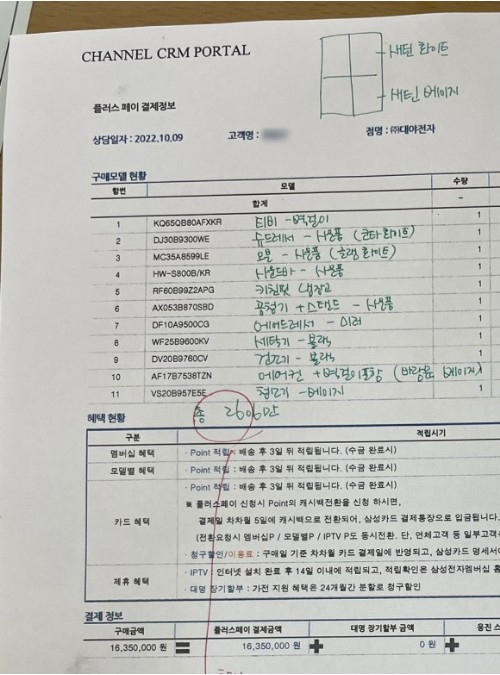 CHANNEL CRM PORTAL
새틴 화이트
새틴 베이지
플러스 페이 결제정보
상담일자 : 2022.10.09 고객명 : 점명 : ㈜대야전자
구매모델 현황
항번 모델 수량
합계 -
1 KQ65QB80AFXKR 티비 - 벽걸이 1
2 DJ30B9300WE 슈드레서 - 사은품 (코타화이트) 1
3 MC35A8599LE 오븐 - 사은품 (크림 화이트) 1
4 HW-S800B/KR 사운드바 - 사은품 1
5 RF60B99Z2APG 키친핏 냉장고 1
6 AX053B870SBD 공청기 + 스탠드 - 사은품 1
7 DF10A9500CG 에어드레서 - 미러 1
8 WF25B9600KV 세탁기 - 블랙 1
9 DV20B9760CV 건조기 - 블랙 1
10 AF17B7538TZN 에어컨 + 벽걸이포함 (바람문 베이지) 1
11 VS20B957E5E 청소기 - 베이지 1
총 2606만
혜택 현황
구분 적립시기
멤버십 혜택 · Point 적립 : 배송 후 3일 뒤 적립됩니다. (수금 완료시)
모델별 혜택 · Point 적립 : 배송 후 3일 뒤 적립됩니다. (수금 완료시)
· Point 적립 : 배송 후 3일 뒤 적립됩니다. (수금 완료시)
※ 플러스페이 신청시 Point의 캐시백전환을 신청 하시면,
카드 혜택 결제일 차차월 5일에 캐시백으로 전환되어, 삼성카드 결제통장으로 입금됩니다.
(전환요청시 멤버십P / 모델별P / IPTV P도 동시전환. 단, 연체고객 등 일부고객
· 청구할인/이용료 : 구매일 기준 차차월 카드 결제일에 반영되고, 삼성카드 명세서
제휴 혜택 · IPTV : 인터넷 설치 완료 후 14일 이내에 적립되고, 적립확인은 삼성전자멤버십 홈
· 대명 장기할부 : 가전 지원 혜택은 24개월간 분할로 청구할인
결제 정보
구매금액 플러스페이 결제금액 대명 장기할부 금액 웅진 스
16,350,000 원 = 16,350,000 원 + 0 원 +